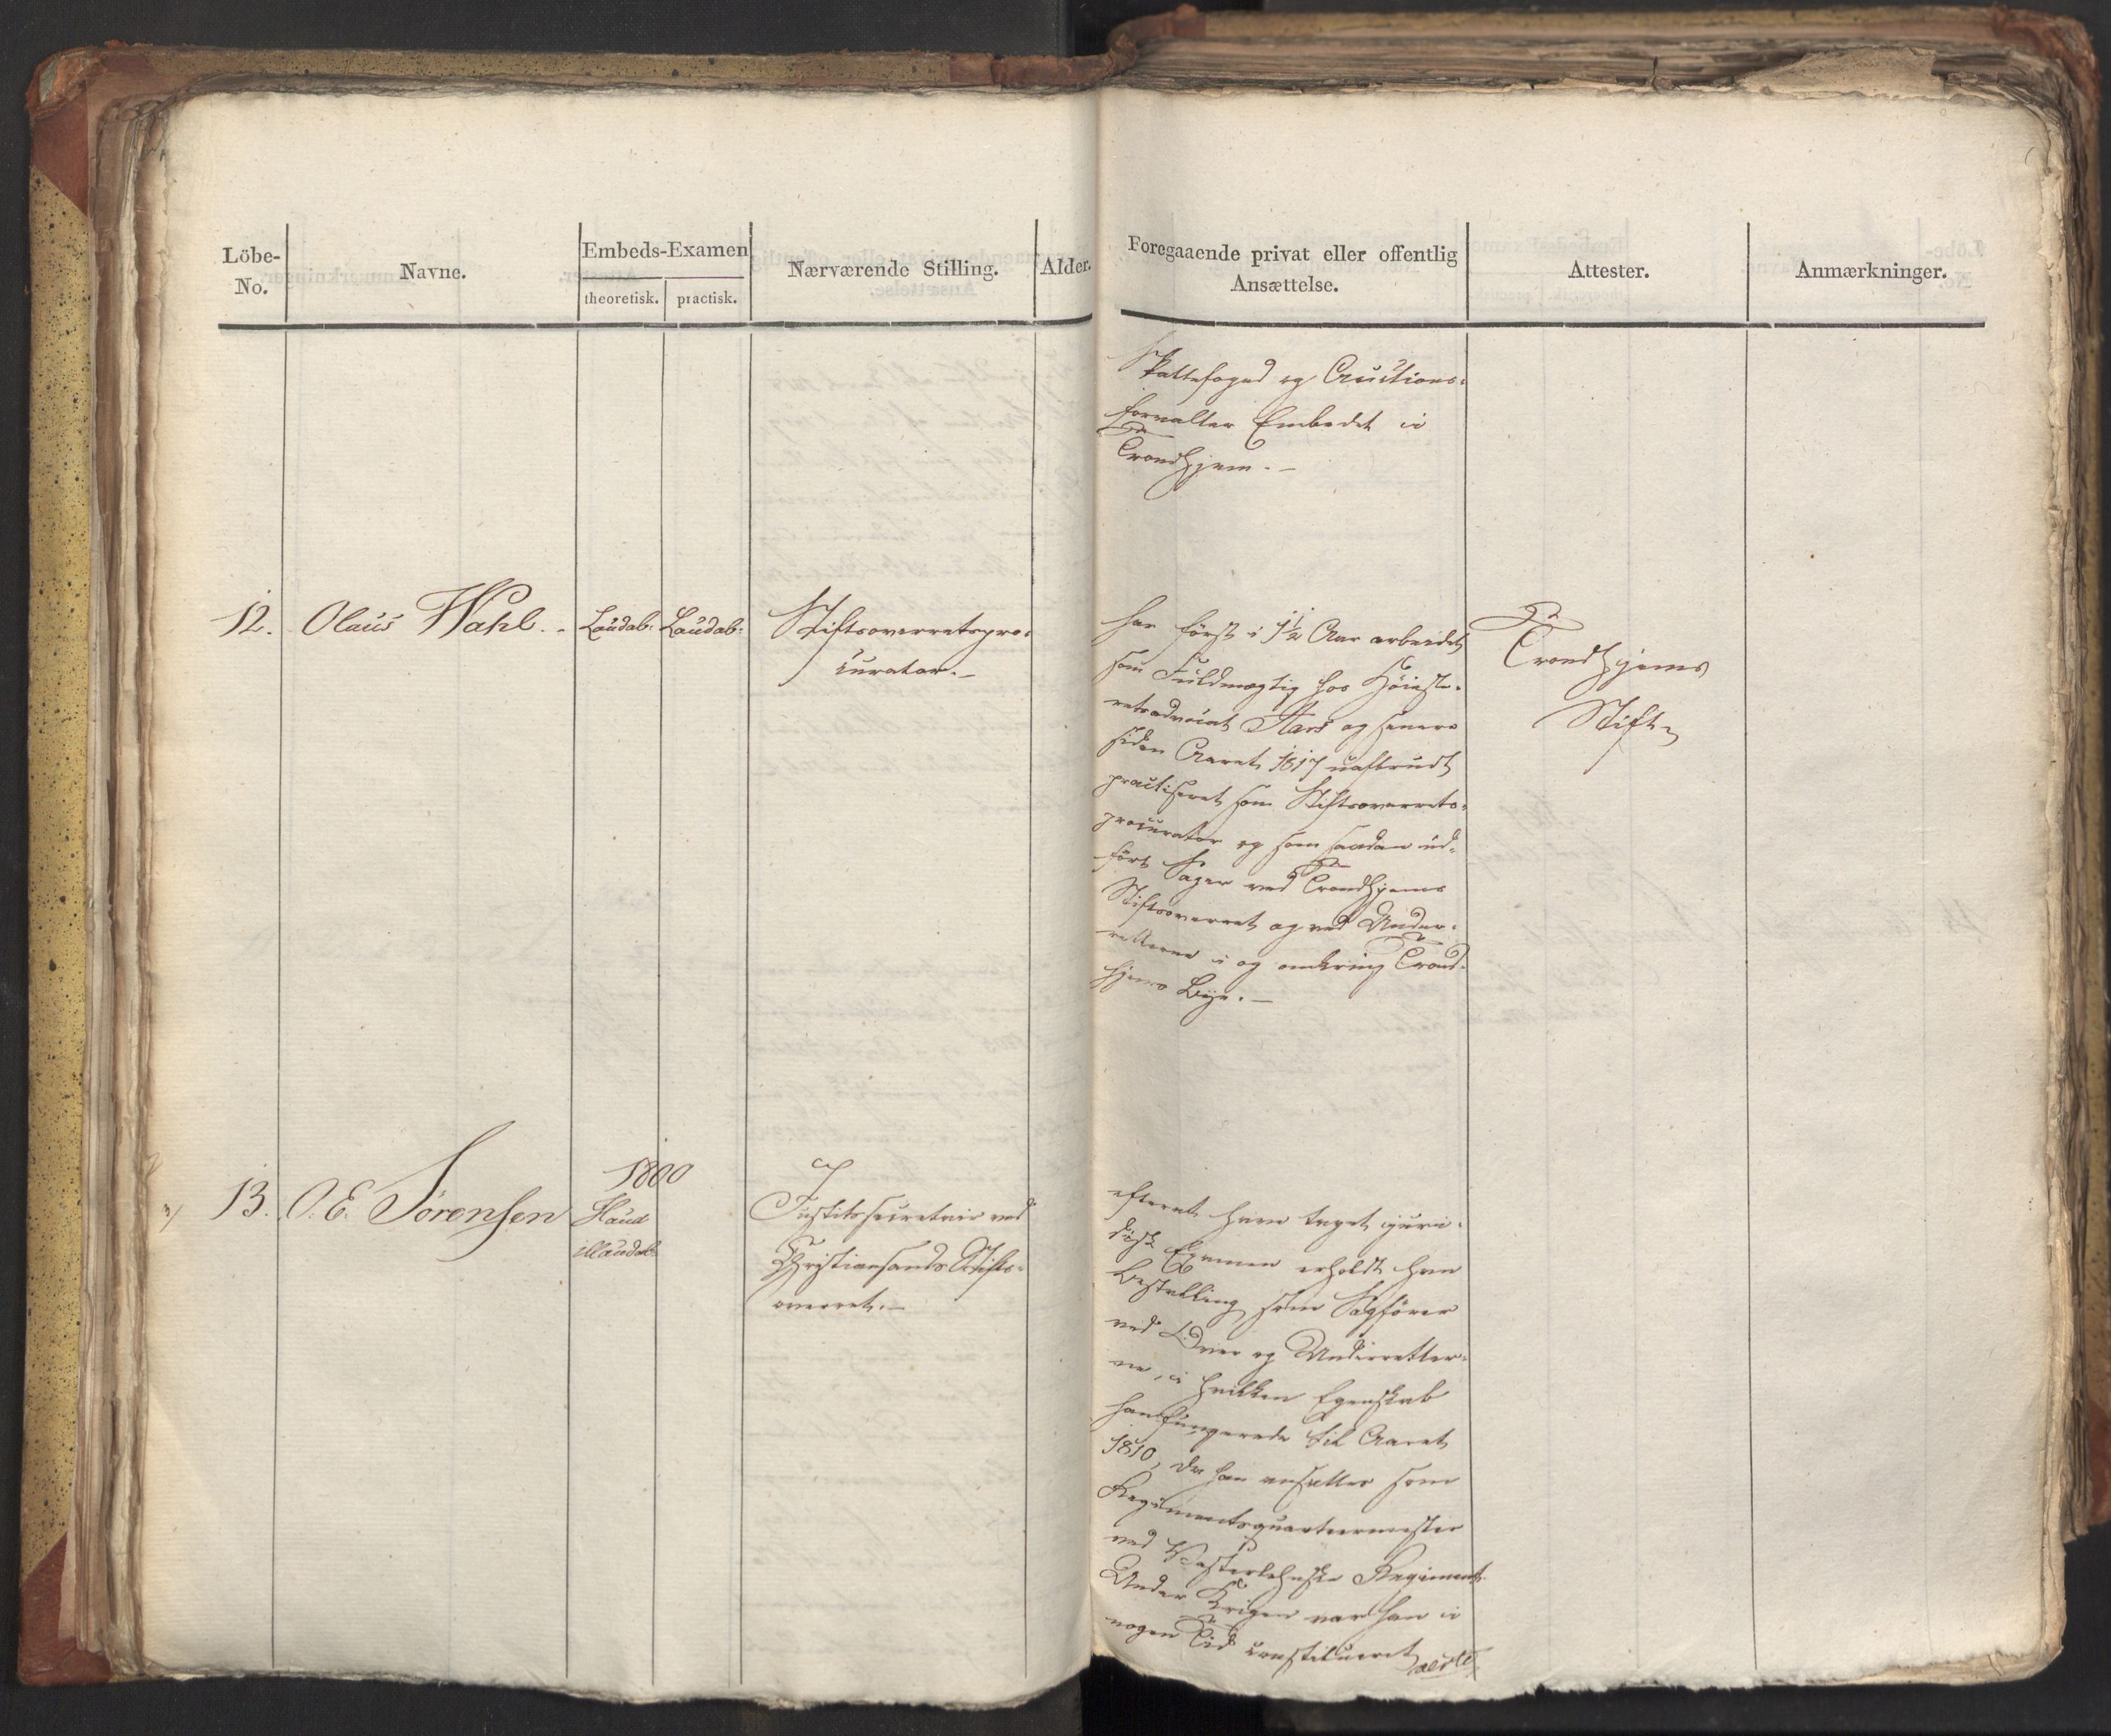 Löbe-
No.
Navne.
Embeds-Examen
theoretisk.
practisk.
Nærværende Stilling.
Alder.
Foregaaende privat eller offentlig
Ansættelse.
Attester.
Anmærkninger.
Skattefoged og Auctions-
forvalter Embedet i
Trondhjem. -
12.
Olaus Wahl. -
Laudab:
Laudab:
Stiftsoverretspro-
curator. -
har först i 1½ Aar arbeidet
som Fuldmægtig hos Höieste-
retsadvocat Aars og senere
siden Aaret 1817 uafbrudt
practiseret som Stiftsoverrets-
procurator og som saadan ud-
fört Sager ved Trondhjems
Stiftsoverret og ved Under-
retterne i og omkring Trond-
hjems Bye. -
Trondhjems
Stift
13.
O. E. Sörensen
1800
Haud
illaudab:
Justitssecretair ved
Christiansands Stifts-
overret. -
efterat have taget juri-
disk Examen erholdt han
Bestalling som Sagförer
ved Over og Underretter-
ne, i hvilken Egenskab
han fungerede til Aaret
1810, da han ansattes som
Regimentsquarteermester
ved Vesterlehnske Regiment.
Under Krigen var han i
nogen Tid constitueret